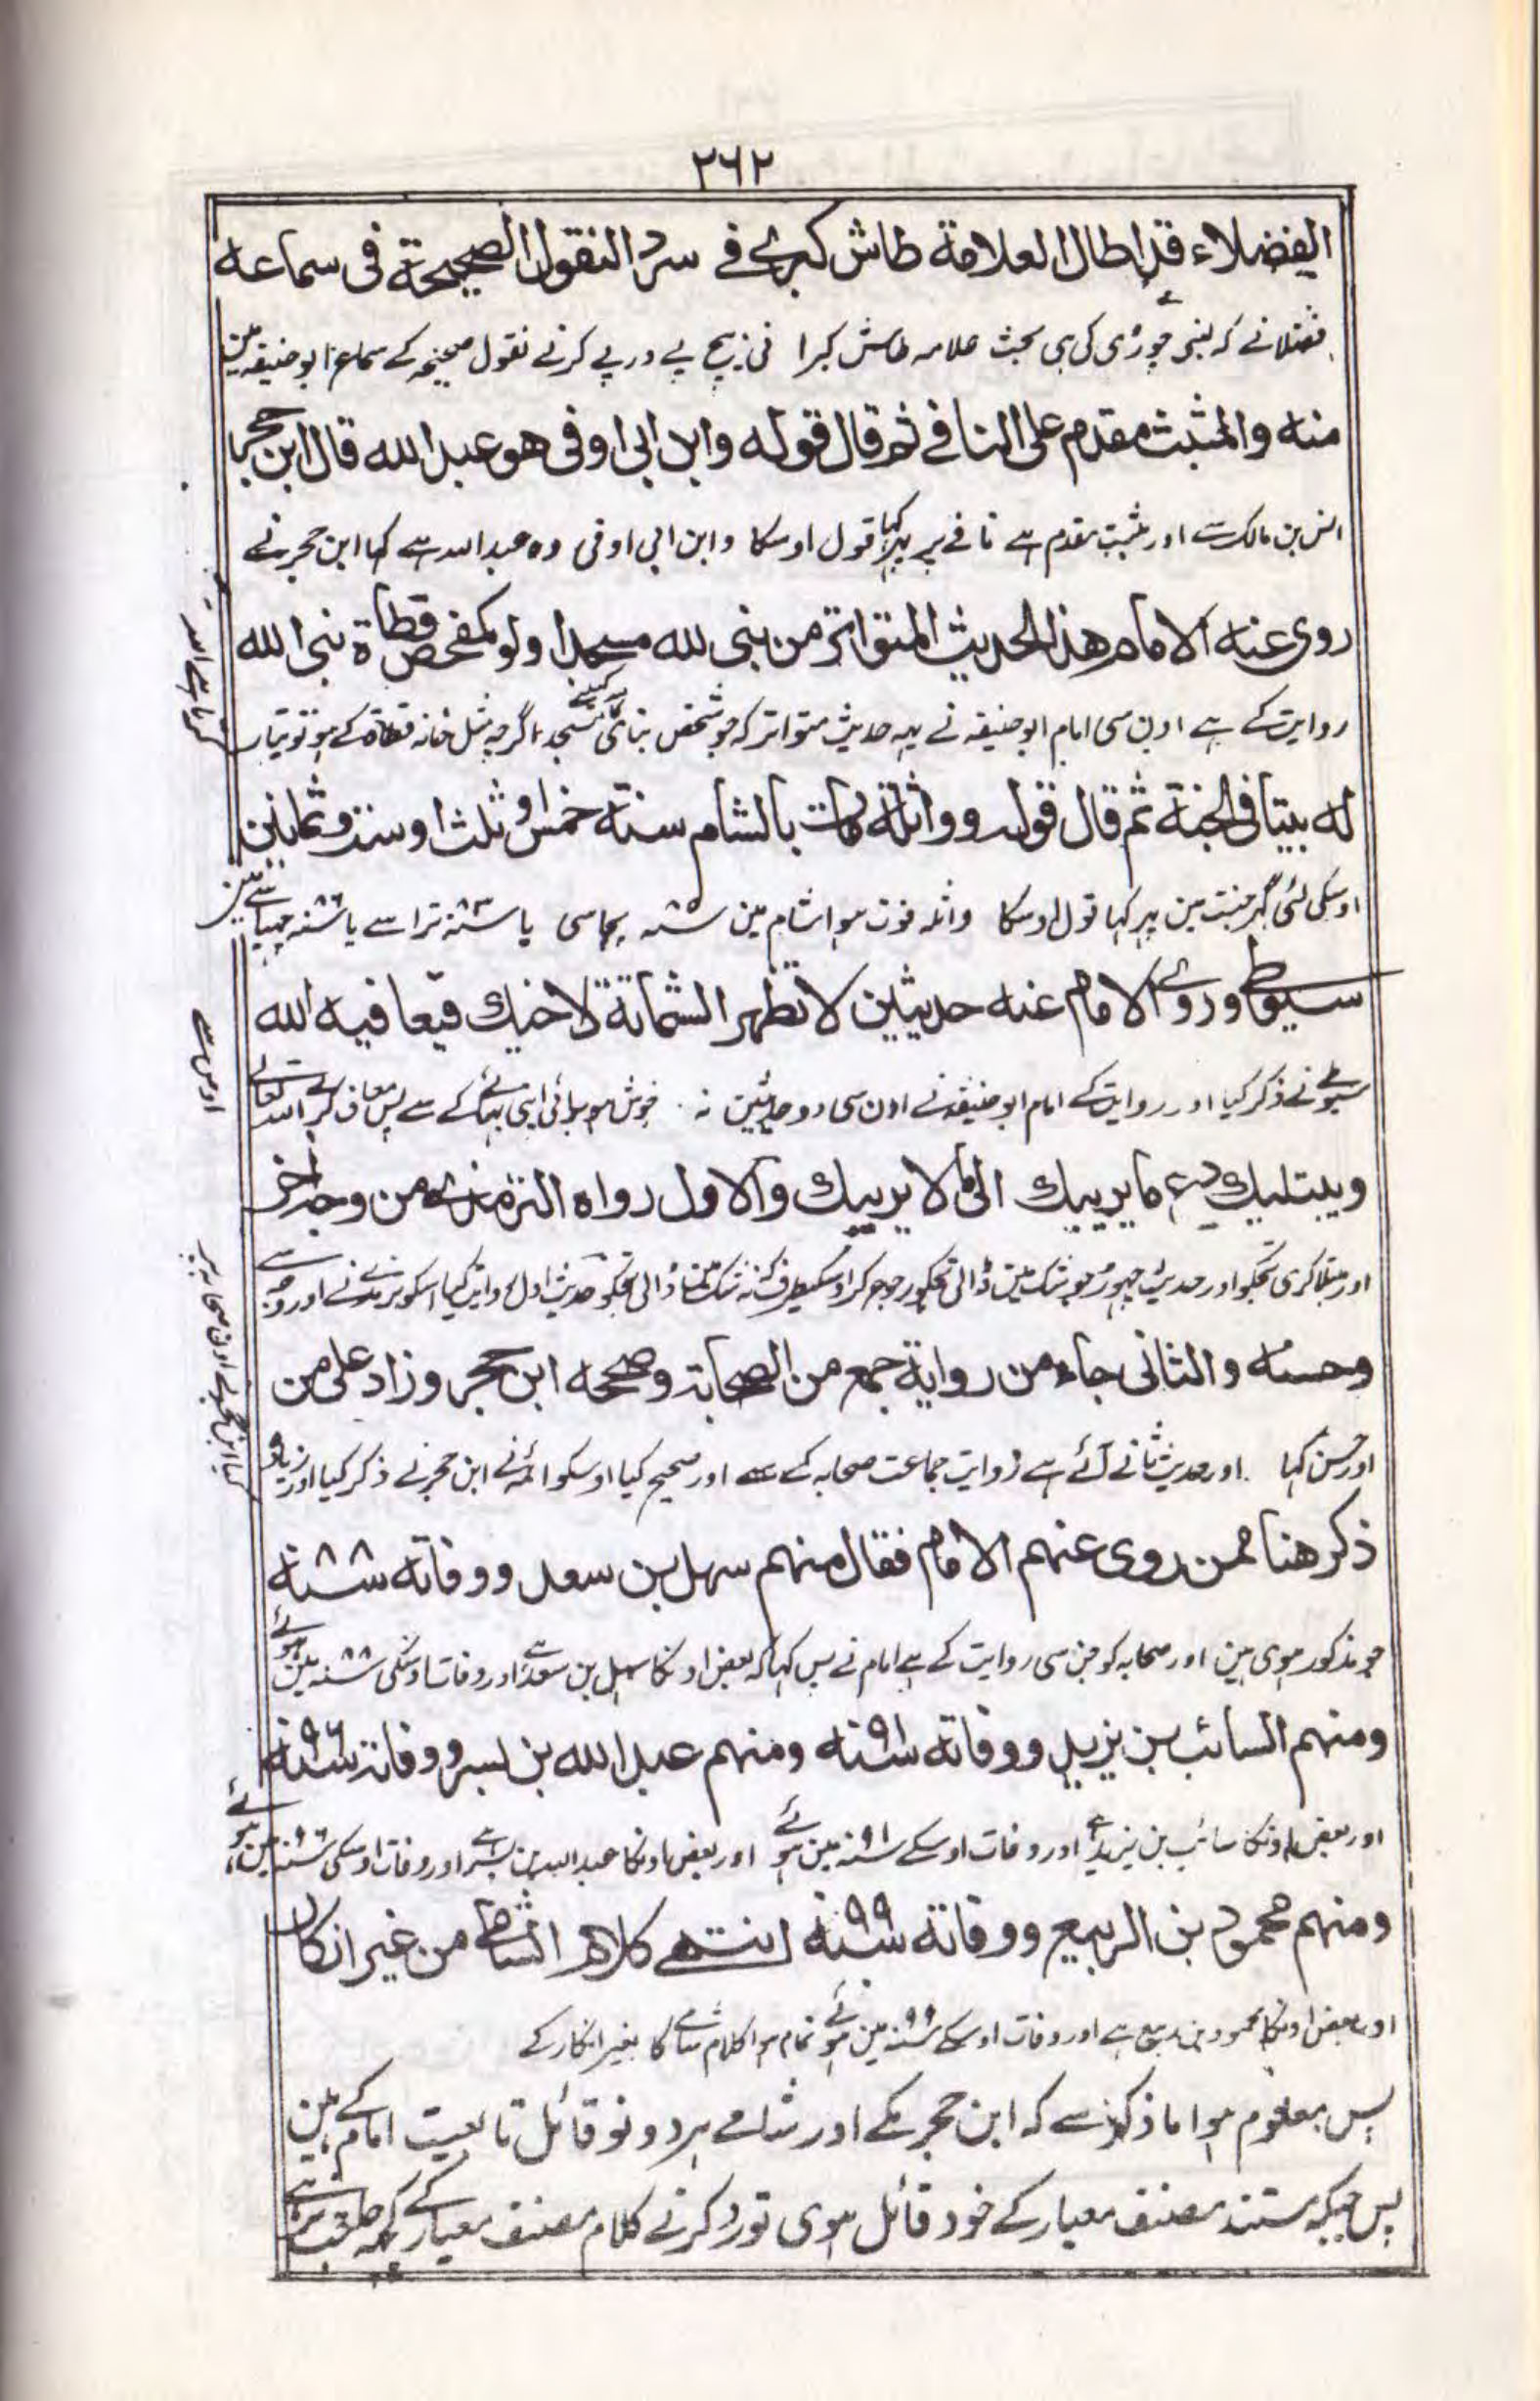 ٢٦٢
الفضلاء قد اطال العلامة طاش كبرى في سرد النقول الصحيحة فى سماعه
فضلا نے کہ لنبی چوڑی کی ہی بحث علامہ طاش کبرا نی بیچ پے درپے کرنے نقول صحیحہ کے سماع ابو حنیفہ مین
منه والمثبت مقدم على النافي ثم قال قوله وابن ابى اوفى هو عبد الله قال ابن حجر
انس بن مالک سے اور مثبت مقدم ہے نافے پر پہر کہا قول اوسکا وابن ابی اوفی وہ عبد اللہ ہے کہا ابن حجر نے
روى عنه الامام هذا الحديث المتواتر من بنى لله مسجدا ولو كمفحص قطاة بنى الله
روایت کے ہے اون سی امام ابو حنیفہ نے یہہ حدیث متواتر کہ جو شخص بنائی مسجد اگرچہ مثل خانہ قطاة کے ہو تو تیار
له بيتا فى الجنة ثم قال قوله وواثلة مات بالشام سنة خمس او ثلث او ست وثمانين
اوسکی لئی گہر جنت مین پہر کہا قول اوسکا واثلہ فوت ہوا شام مین ٨٥ سنہ پچاسی یا ٨٣ سنہ تراسے یا ٨٦ سنہ چہیاسے مین
سيوطى وروى الامام عنه حديثين لا تظهر الشماتة لاخيك فيعافيه الله
سیوطے نے ذکر کیا اور روایت کے امام ابو حنیفہ نے اون سی دو حدیثین نہ خوش ہو برائی اپنی بہائے کے سے پس معاف کرے اللہ تعالے
ويبتليك دع ما يريبك الى ما لا يريبك والاول رواه الترمذى من وجه اخر
اور مبتلا کری تجکو اور حدیث چہوڑ جو شک مین ڈالی تجکو رجوع کر اوسکیطرف کہ نہ شک مین ڈالی تجکو حدیث اول روایت کیا اسکو ترمذے نے اور وجہ سے
وحسنه والثانى جاء من رواية جمع من الصحابة وصححه ابن حجر وزاد على من
اور حسن کہا اور حدیث ثانے آئے ہے روایت جماعت صحابہ کے سے اور صحیح کیا اوسکو ائمہ نے ابن حجر نے ذکر کیا اور زیادہ
ذكر هنا ممن روى عنهم الامام فقال منهم سهل بن سعد ووفاته ٨٨ سنة
جو مذکور ہوی ہین اور صحابہ کو جن سی روایت کے ہے امام نے پس کہا کہ بعض اونکا سہل بن سعد ہے اور وفات اوسکی ٨٨ سنہ مین ہوئے
ومنهم السائب بن يزيد ووفاته ٩١ سنة ومنهم عبد الله بن بسر ووفاته ٩٦ سنة
اور بعض اونکا سائب بن یزید ہے اور وفات اوسکے ٩١ سنہ مین ہوئے اور بعض اونکا عبد اللہ بن بسر ہے اور وفات اوسکی ٩٦ سنہ مین ہوئے
ومنهم محمود بن الربيع ووفاته ٩٩ سنة انتهى كلام الشامى من غير انكار
اور بعض اونکا محمود بن ربیع ہے اور وفات اوسکے ٩٩ سنہ مین ہوئے تمام ہوا کلام شامے کا بغیر انکار کے
پس معلوم ہوا ما ذکر سے کہ ابن حجر مکے اور شامے ہر دونو قائل تابعیت امام کے ہین
پس جبکہ مستند مصنف معیار کے خود قائل ہوی تو رد کرنے کلام مصنف معیار کے